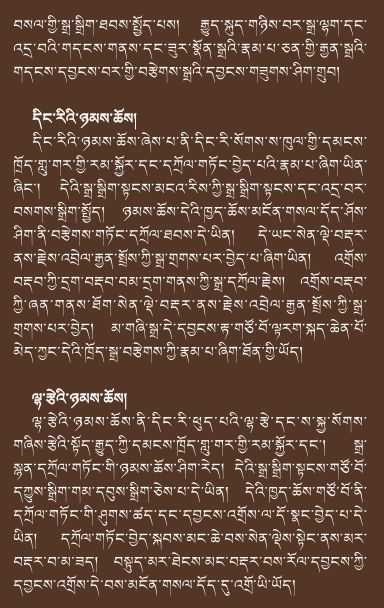 བསལ་གྱི་སྒྲ་སྒྲིག་ཐབས་སྤྱོད་པས། རྒྱུད་སྐུད་གཉིས་བར་སྒྲ་ལྷག་དང་
འདྲ་བའི་གདངས་གནས་དང་ཟུར་སྣོན་སྒྲའི་རྣམ་པ་ཅན་གྱི་རྒྱན་སྒྲའི་
གདངས་དབྱངས་བར་གྱི་བརྩེགས་སྒྲའི་དབྱངས་གཟུགས་ཤིག་གྲུབ།
དིང་རིའི་ཉམས་ཆོས།
དིང་རིའི་ཉམས་ཆོས་ཞེས་པ་ནི་དིང་རི་སོགས་ས་ཁུལ་གྱི་དམངས་
ཁྲོད་གླུ་གར་གྱི་རམ་སྐྱོར་དང་དཀྲོལ་གཏོང་བྱེད་པའི་རྣམ་པ་ཞིག་ཡིན་
ཞིང་། དེའི་སྒྲ་སྒྲིག་སྟངས་མངའ་རིས་ཀྱི་སྒྲ་སྒྲིག་སྟངས་དང་འདྲ་བར་
བསགས་སྒྲིག་སྤྱོད། ཉམས་ཆོས་དེའི་ཁྱད་ཆོས་མངོན་གསལ་དོད་ཤོས་
ཤིག་ནི་བརྩེགས་གཏོང་དཀྲོལ་ཐབས་དེ་ཡིན། དེ་ཡང་སེན་ལྡེ་བརྡར་
ནས་རྗེས་འབྲེལ་རྒྱན་སྤྲོས་ཀྱི་སྒྲ་གྲགས་པར་བྱེད་པ་ཞིག་ཡིན། འགྲོས་
བརྡབ་ཀྱི་དྲག་བརྡབ་བམ་དྲག་གནས་ཀྱི་སྒྲ་དཀྲོལ་རྗེས། འགྲོས་བརྡབ་
ཀྱི་ཞན་གནས་ཐོག་སེན་ལྡེ་བརྡར་ནས་རྗེས་འབྲེལ་རྒྱན་སྤྲོས་ཀྱི་སྒྲ་
གྲགས་པར་བྱེད། མ་གཞི་སྒྲ་དེ་དབྱངས་རྟ་གཙོ་བོ་ལྟརག་སྐད་ཆེན་པོ་
མེད་ཀྱང་དེའི་ཁྲོད་སྒྲ་བརྩེགས་ཀྱི་རྣམ་པ་ཞིག་ཐོན་གྱི་ཡོད།
ལྷ་རྩེའི་ཉམས་ཆོས།
ལྷ་རྩེའི་ཉམས་ཆོས་ནི་དིང་རི་ཕུད་པའི་ལྷ་རྩེ་དང་ས་སྐྱ་སོགས་
གཞིས་རྩེའི་སྟོད་རྒྱུད་ཀྱི་དམངས་ཁྲོད་གླུ་གར་གྱི་རམ་སྐྱོར་དང་། སྒྲ་
སྙན་དཀྲོལ་གཏོང་གི་ཉམས་ཆོས་ཤིག་རེད། དེའི་སྒྲ་སྒྲིག་སྟངས་གཙོ་བོ་
དཀྱུས་སྒྲིག་གམ་དབུས་སྒྲིག་ཅེས་པ་དེ་ཡིན། དེའི་ཁྱད་ཆོས་གཙོ་བོ་ནི་
དཀྲོལ་གཏོང་གི་ཤུགས་ཚད་དང་དབྱངས་འགྲོས་ལ་ངོ་སྣང་བྱེད་པ་དེ་
ཡིན། དཀྲོལ་གཏོང་བྱེད་སྐབས་མང་ཆེ་བས་སེན་ལྡེས་སྟེང་ནས་མར་
བརྡར་བ་མ་ཟད། བསྡུད་མར་ཐེངས་མང་བརྡར་བས་རོལ་དབྱངས་ཀྱི་
དབྱངས་འགྲོས་དེ་བས་མངོན་གསལ་དོད་དུ་འགྲོ་ཡི་ཡོད།